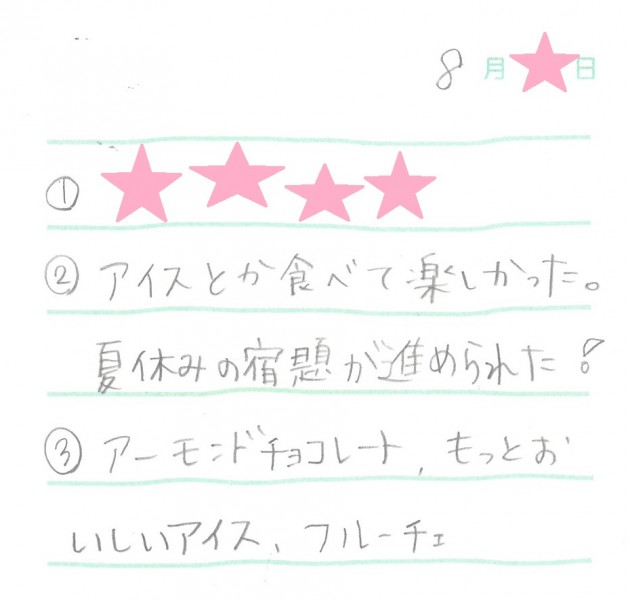 8月 日
①
②アイスとか食べて楽しかった。
夏休みの宿題が進められた!
③アーモンドチョコレート、もっとお
いしいアイス、フルーチェ